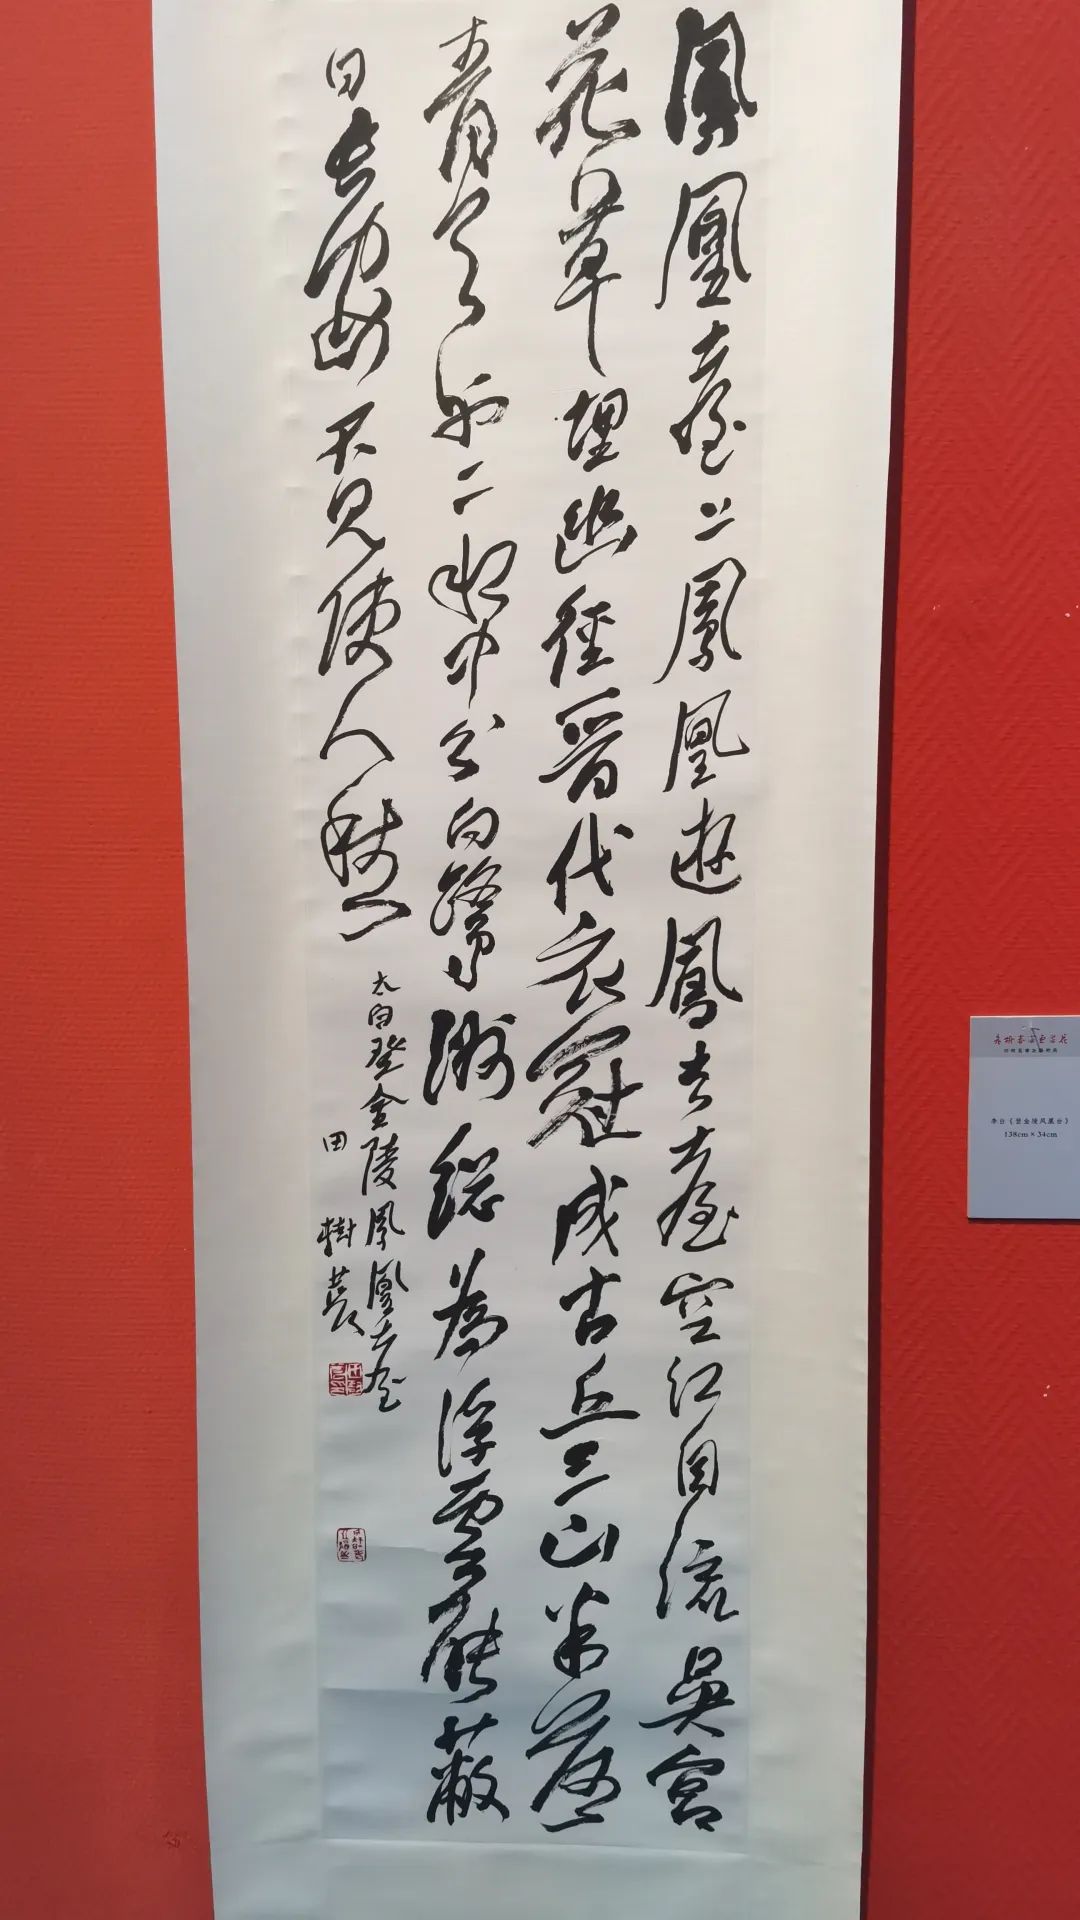 鳳凰臺上鳳凰遊鳳去臺空江自流吳宮
花草埋幽徑晉代衣冠成古丘三山半落
青天外二水中分白鷺洲總為浮雲能蔽
日長安不見使人愁
太白登金陵鳳凰臺
田樹萇
李白《登金陵凤凰台》
138cm×34cm